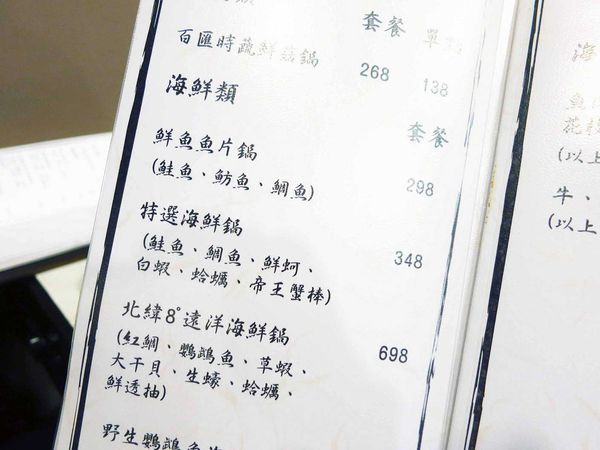 套餐 單
百匯時蔬鮮菇鍋 268 138
海鮮類 套餐
鮮魚魚片鍋 298
(鮭魚、魴魚、鯛魚)
特選海鮮鍋 348
(鮭魚、鯛魚、鮮蚵、
白蝦、蛤蠣、帝王蟹棒)
北緯8°遠洋海鮮鍋 698
(紅鯛、鸚鵡魚、草蝦、
大干貝、生蠔、蛤蠣、
鮮透抽)
野生鸚鵡魚
海
魚
花
(以上
牛、
(以上